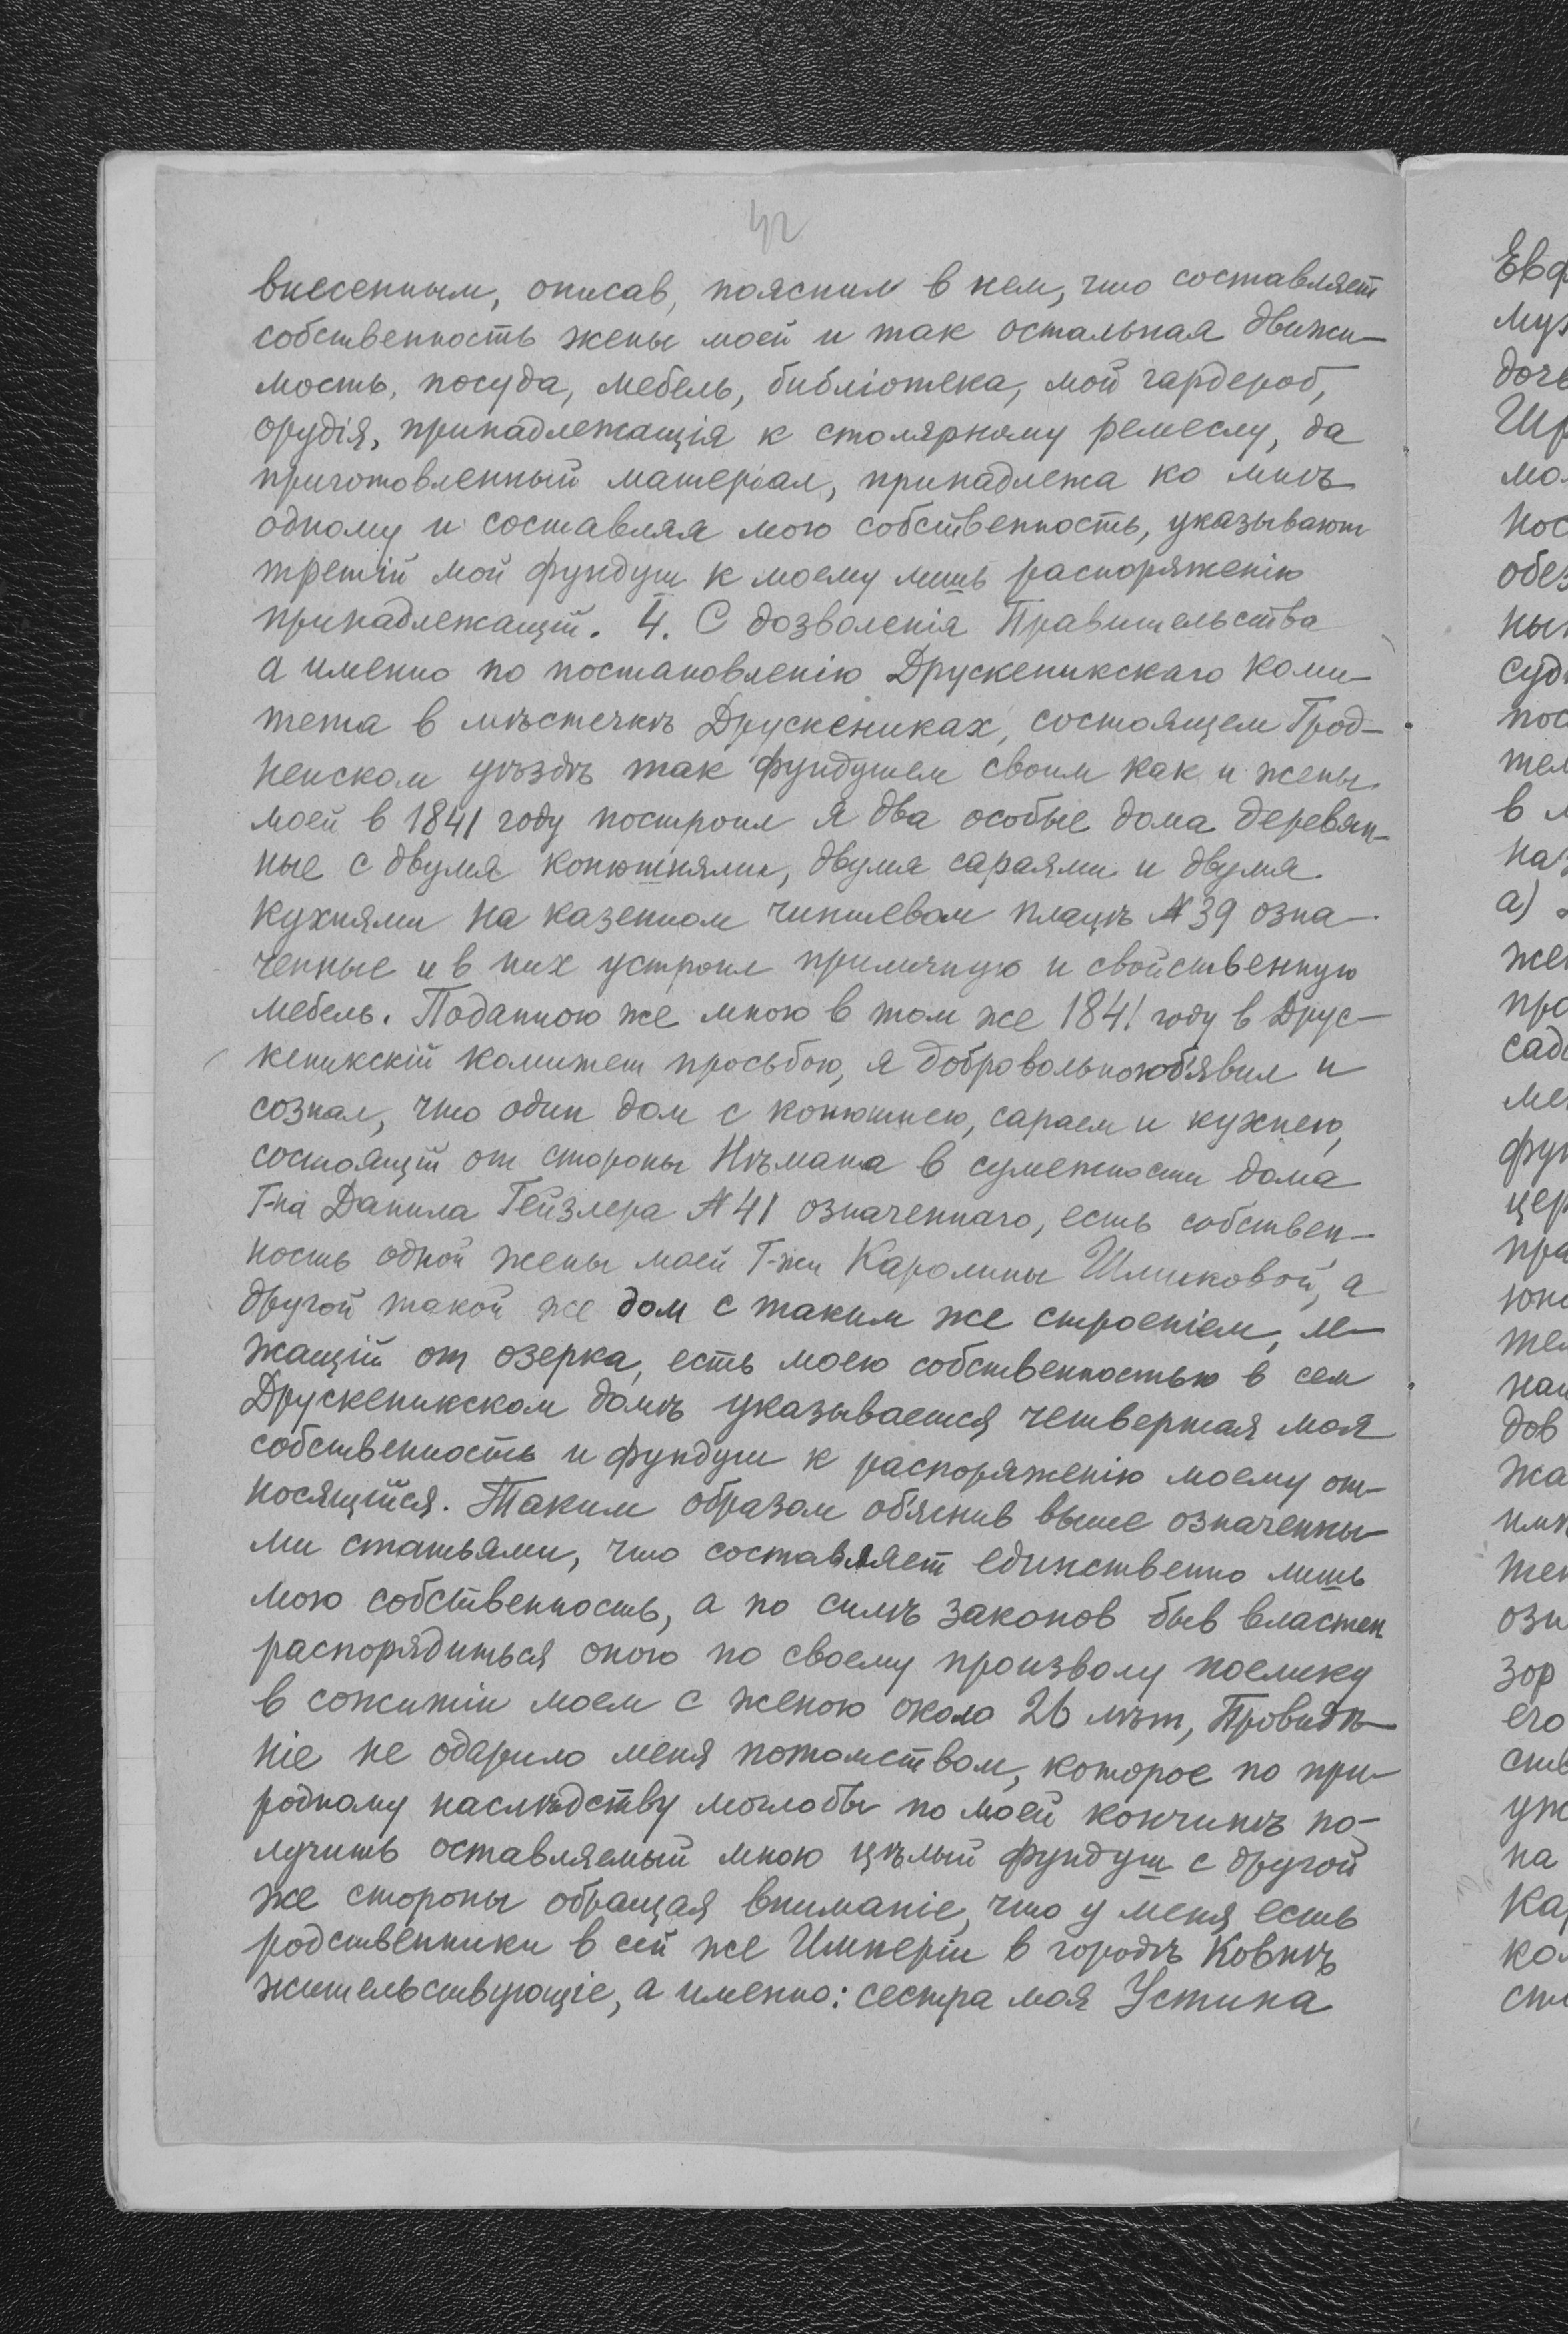 42
внесенным, описав, пояснил в нем, что составляет
собственность жены моей и так остальная движи-
мость, посуда, мебель, библіотека, мой гардероб,
орудія, принадлежащія к столярному ремеслу, да
приготовленный матеріал, принадлежа ко мнѣ
одному и составляя мою собственность, указывают
третій мой фундуш к моему лишь распоряженію
принадлежащій. 4. С дозволенія Правительства
а именно по постановленію Друскеникскаго коми-
тета в мѣстечкѣ Друскениках, состоящем Грод-
ненском уѣздѣ так фундушем своим как и жены
моей в 1841 году построил я два особые дома деревян-
ные с двумя конюшнями, двумя сараями и двумя
кухнями на казенном чиншевом плацѣ № 39 озна-
ченные и в них устроил приличную и свойственную
мебель. Поданною же мною в том же 1841 году в Друс-
кеникскій комитет просьбою, я добровольно объявил и
сознал, что один дом с конюшнею, сараем и кухнею,
состоящій от стороны Нѣмана в сумежности дома
Г-на Данила Гейзлера № 41 означеннаго, есть собствен-
ность одной жены моей Г-жи Каролины Шликовой, а
другой такой же дом с таким же строеніем, ле-
жащій от озерка, есть моею собственностью в сем
Друскеникском домѣ указывается четвертая моя
собственность и фундуш к распоряженію моему от-
носящійся. Таким образом об'яснив выше означенны-
ми статьями, что составляет единственно лишь
мою собственность, а по силѣ законов быв властен
распорядиться оною по своему произволу поелику
в сожитіи моем с женою около 26 лѣт, Провидѣ-
ніе не одарило меня потомством, которое по при-
родному наслѣдству моглобы по моей кончинѣ по-
лучить оставляемый мною цѣлый фундуш с другой
же стороны обращая вниманіе, что у меня есть
родственники в сей же Имперіи в городѣ Ковнѣ
жительствующіе, а именно: сестра моя Устина